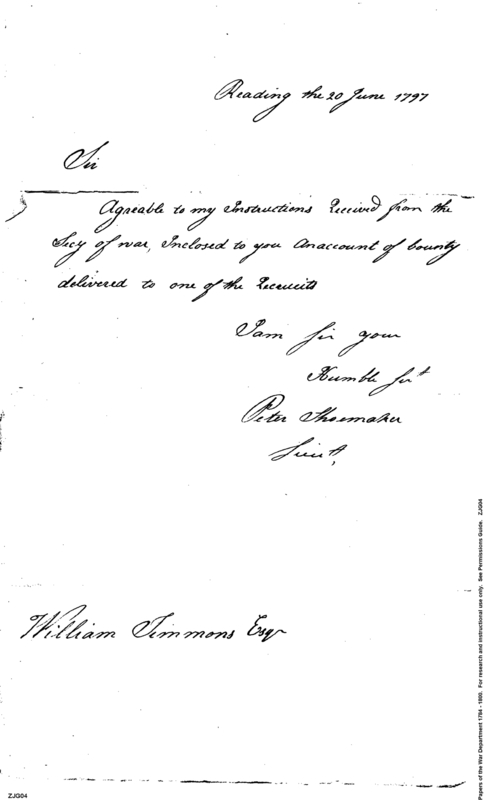 Reading the 20 June 1797
Sir
Agreable to my Instructions Received from the
Secy of war, Inclosed to you an account of bounty
delivered to one of the Recruits
I am Sir your
Humble Sert
Peter Shoemaker
Lieut,
William Simmons Esqr
ZJG04
Papers of the War Department 1784 - 1800. For research and instructional use only. See Permissions Guide. ZJG04